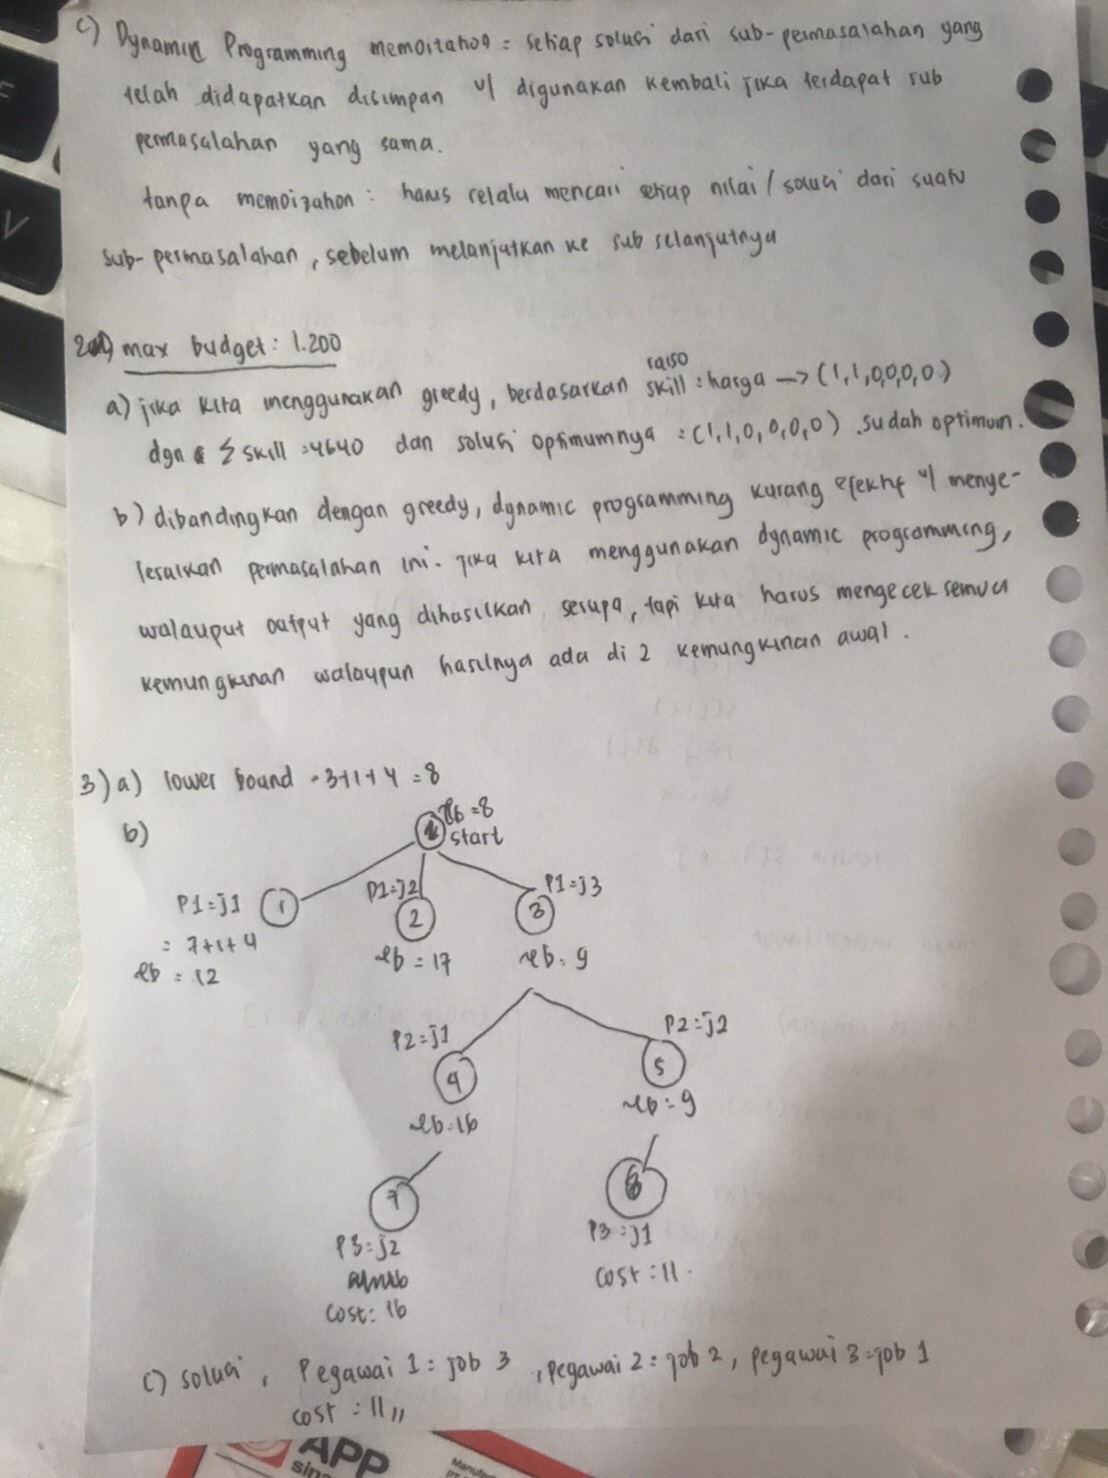 c) Dynamic Programming memoitation = setiap solusi dari sub-permasalahan yang
telah didapatkan disimpan u/ digunakan kembali jika terdapat sub
permasalahan yang sama.
tanpa memoization : harus selalu mencari setiap nilai / solusi dari suatu
sub-permasalahan, sebelum melanjutkan ke sub selanjutnya
2) max budget : 1.200
a) jika kita menggunakan greedy, berdasarkan rasio skill : harga → (1,1,0,0,0,0)
dgn Σ skill = 4640 dan solusi optimumnya = (1,1,0,0,0,0). sudah optimum.
b) dibandingkan dengan greedy, dynamic programming kurang efektif u/ menye-
lesaikan permasalahan ini. jika kita menggunakan dynamic programming,
walauput output yang dihasilkan serupa, tapi kita harus mengecek semua
kemungkinan walaupun hasilnya ada di 2 kemungkinan awal.
3) a) lower bound = 3+1+4 = 8
b)
lb = 8
start
P1=j1 1 P1=j2 2 P1=j3 3
= 7+1+4
lb = 12 lb = 17 lb = 9
P2=j1 P2=j2
4 5
lb = 16 lb = 9
7 6
P3=j2 P3=j1
cost : 16 cost : 11.
c) solusi, Pegawai 1 = job 3, Pegawai 2 = job 2, pegawai 3 = job 1
cost = 11 //
APP
sina
Manufac